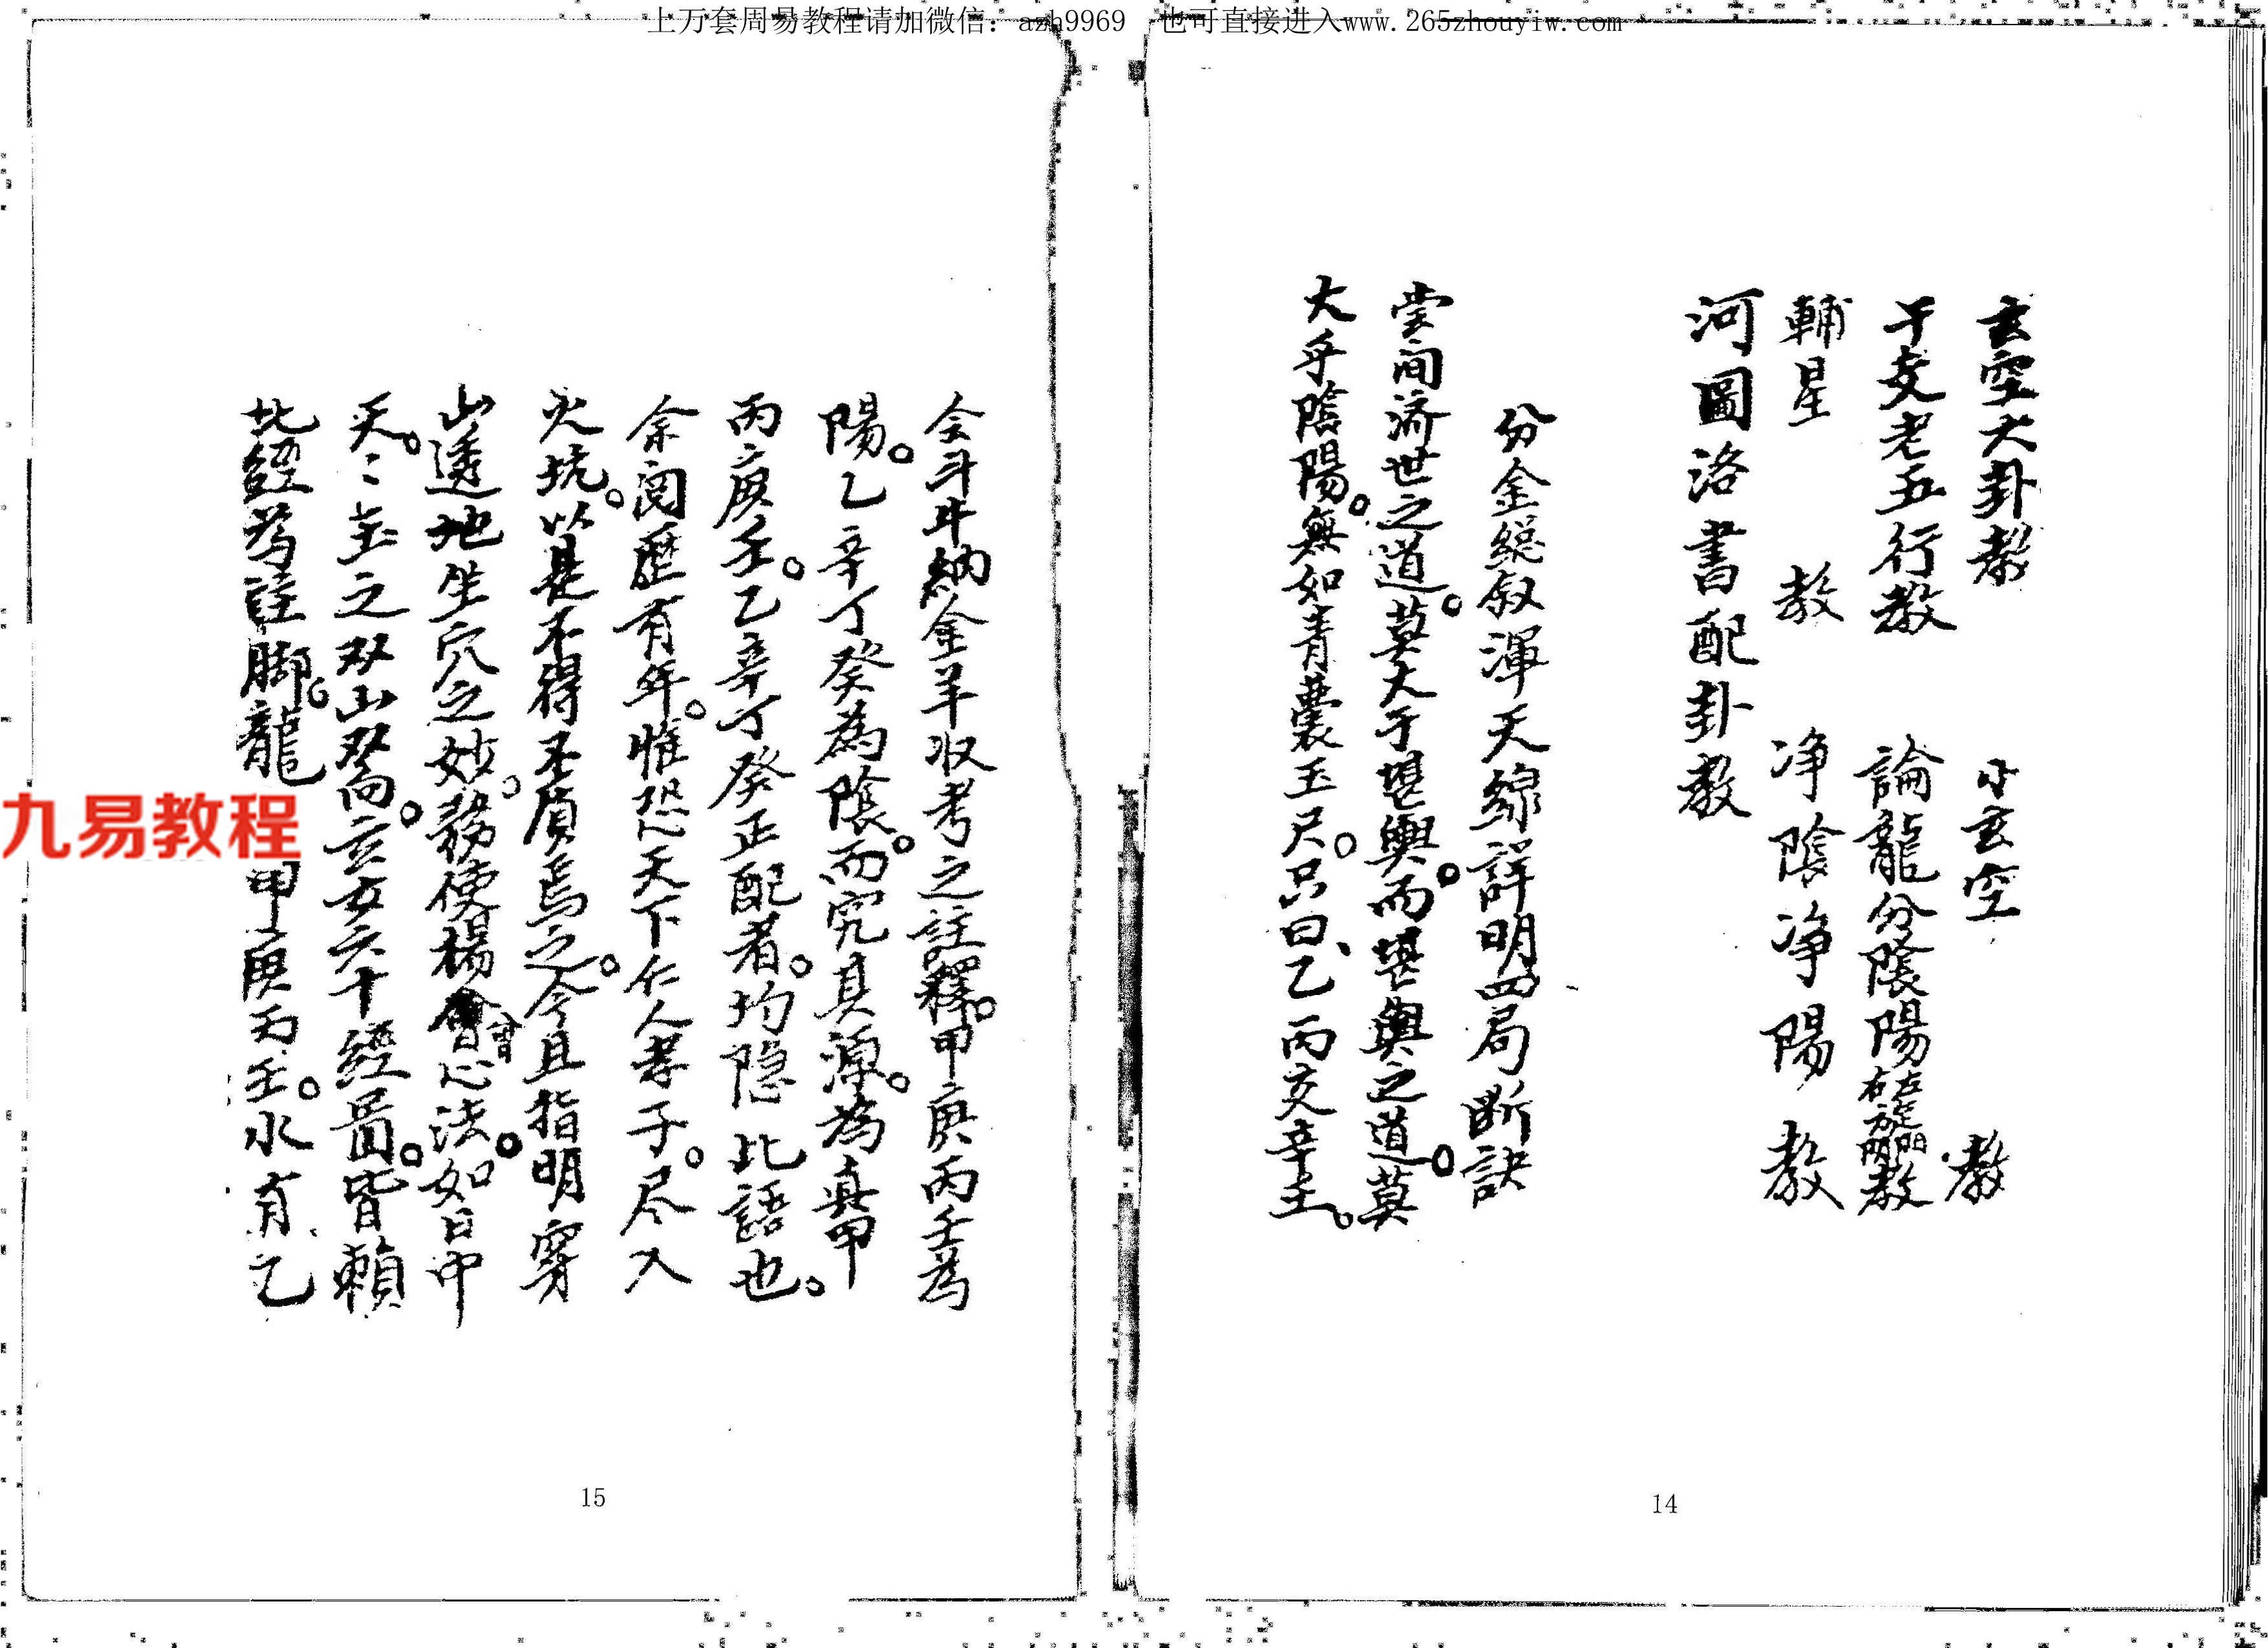 上万套周易教程请加微信：azh9969 也可直接进入www.265zhouyiw.com
玄空大卦教 小玄空教
干支老五行教 論龍分陰陽右左旋教
輔星教 净陰净陽教
河圖洛書配卦教
分金總叙渾天線詳明四局断訣
尝间济世之道。莫大于堪輿。而堪輿之道。莫
大乎陰陽。無如青囊玉尺。只曰、乙丙交辛壬。
14
会斗牛納金羊收考之註釋。甲庚丙壬為
陽。乙辛丁癸為陰。而究其源。為真甲
丙庚壬。乙辛丁癸正配者。均隐此語也。
余阅歷有年。惟恐天下仁人孝子。尽入
火坑。以是不得不質焉之。今且指明穿
山透地生穴之妙。務使楊曾心法。如日中
天。〻玉之双山双向。玄女六十經啚。皆賴
此經為註脚。龍甲庚丙壬。水有乙
九易教程
15